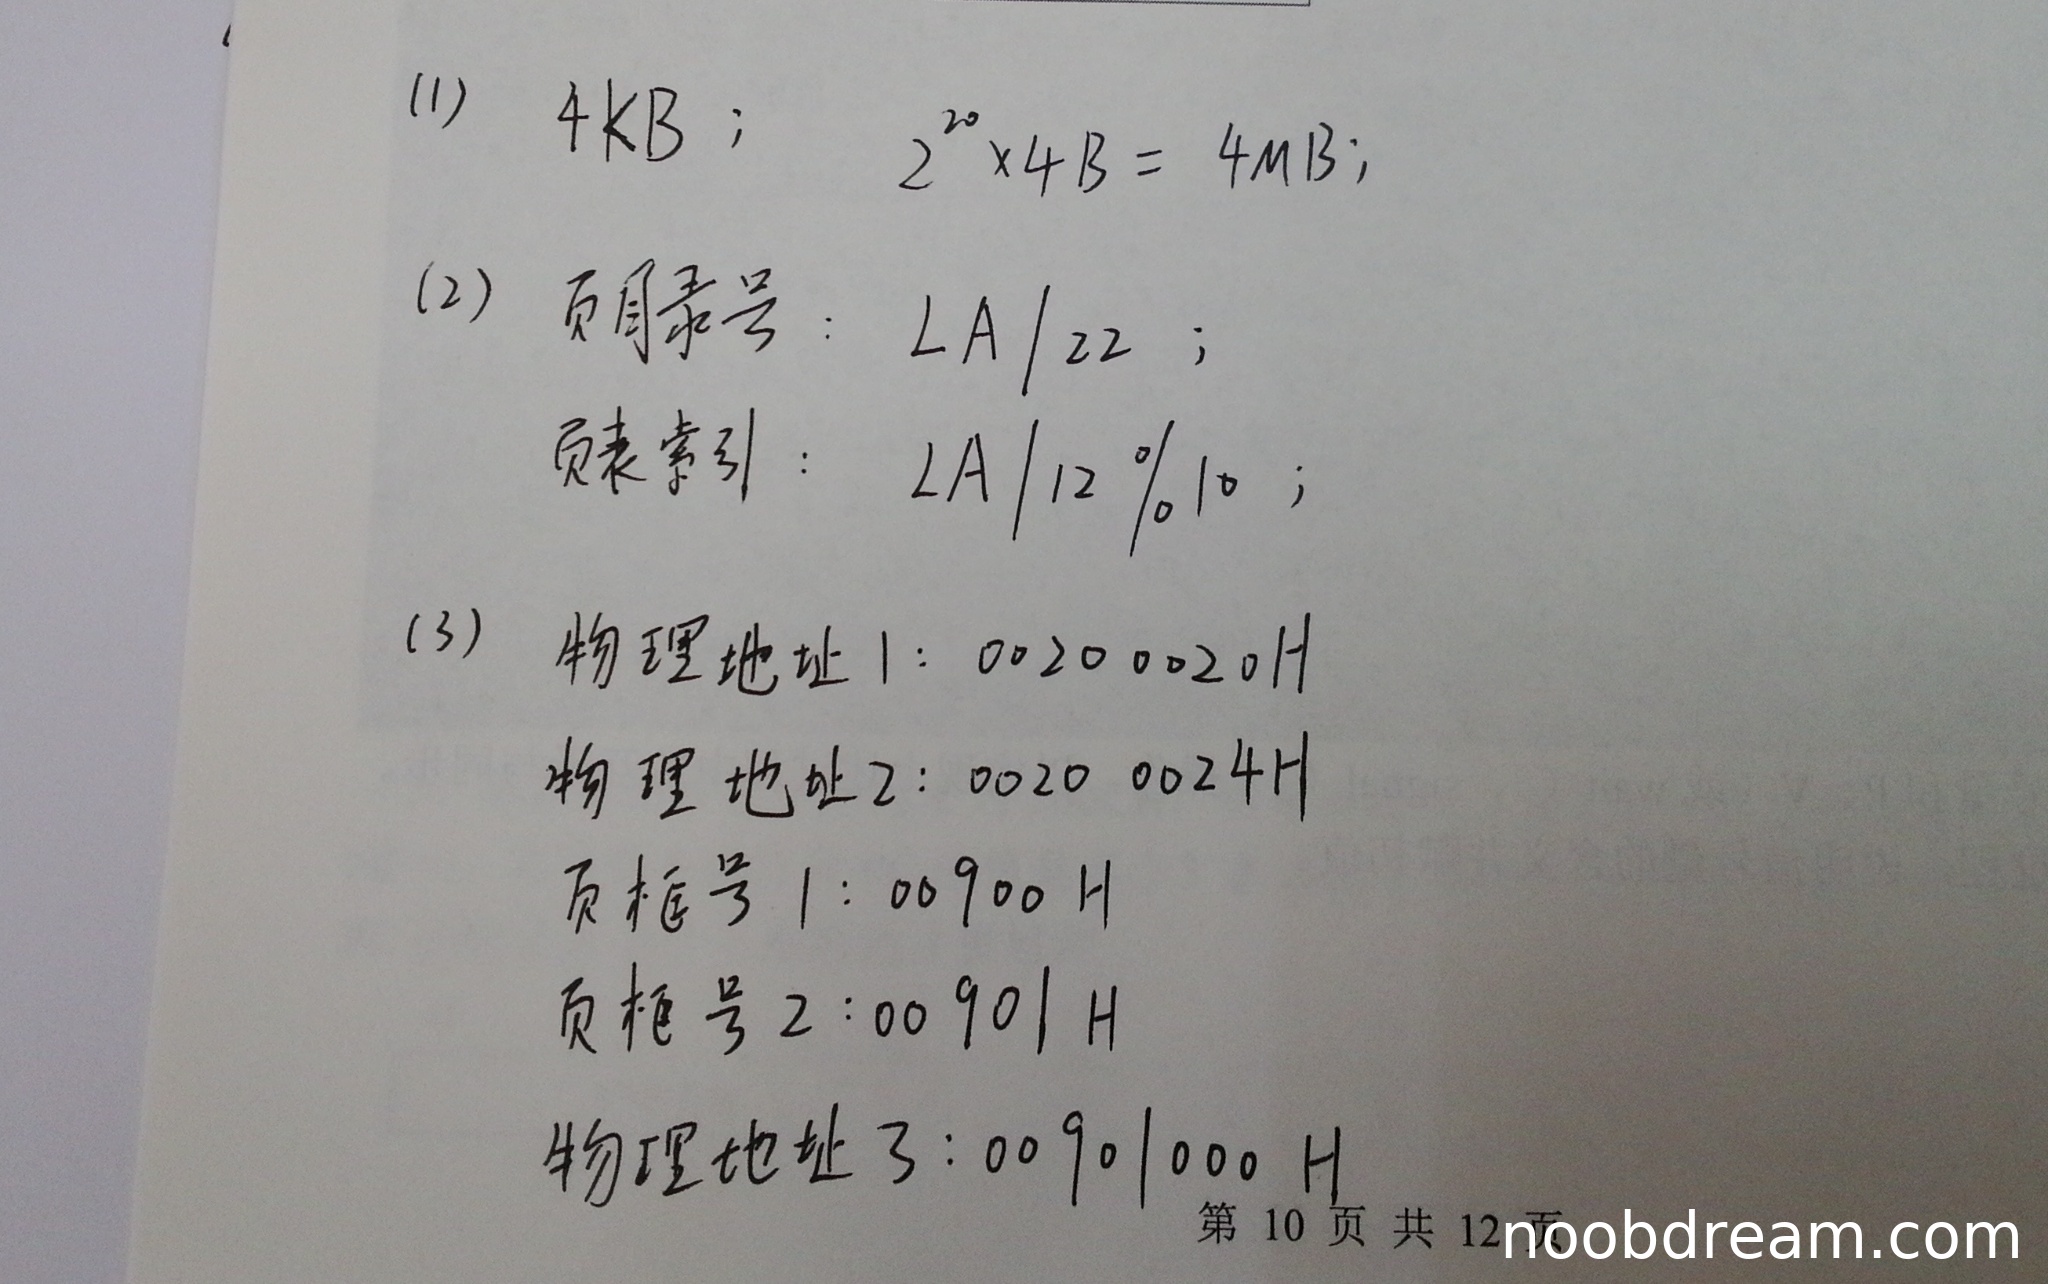 (1) 4KB; 2^20×4B=4MB;
(2) 页目录号: LA/22;
页表索引: LA/12%10;
(3) 物理地址1: 0020 0020H
物理地址2: 0020 0024H
页框号1: 00900H
页框号2: 00901H
物理地址3: 00901000H
第 10 页 共 12 页
noobdream.com